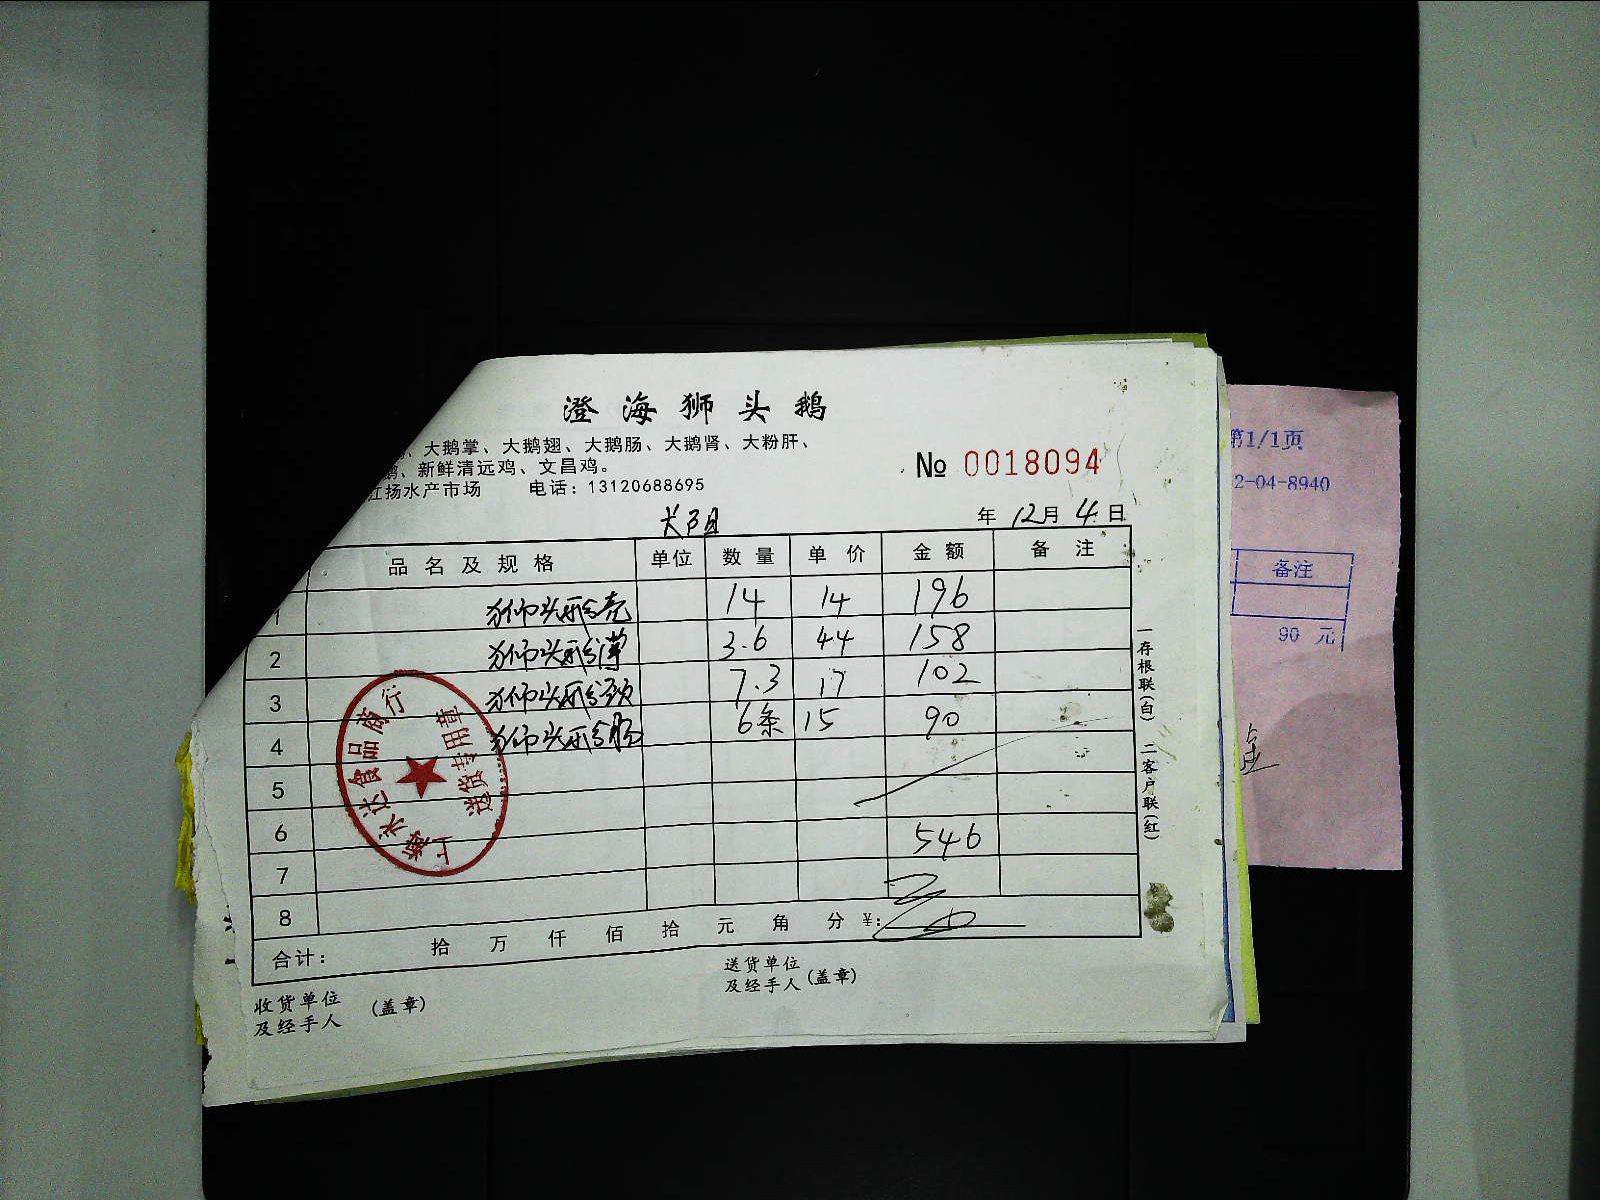 澄海狮头鹅
、大鹅掌、大鹅翅、大鹅肠、大鹅肾、大粉肝、
鹅、新鲜清远鸡、文昌鸡。
江扬水产市场 电话：13120688695
№ 0018094
长阳
年 12月 4 日
品名及规格 单位 数量 单价 金额 备注
1 狮头鹅壳 14 14 196
2 狮头鹅 3.6 44 158
3 狮头鹅颈 7.3 17 102
4 狮头鹅肠 6条 15 90
5
6 546
7
8
合计： 拾 万 仟 佰 拾 元 角 分 ¥：
收货单位及经手人 (盖章)
送货单位及经手人 (盖章)
一存根联(白) 二客户联(红)
上海永达食品商行
送货专用章
第1/1页
2-04-8940
备注
90 元